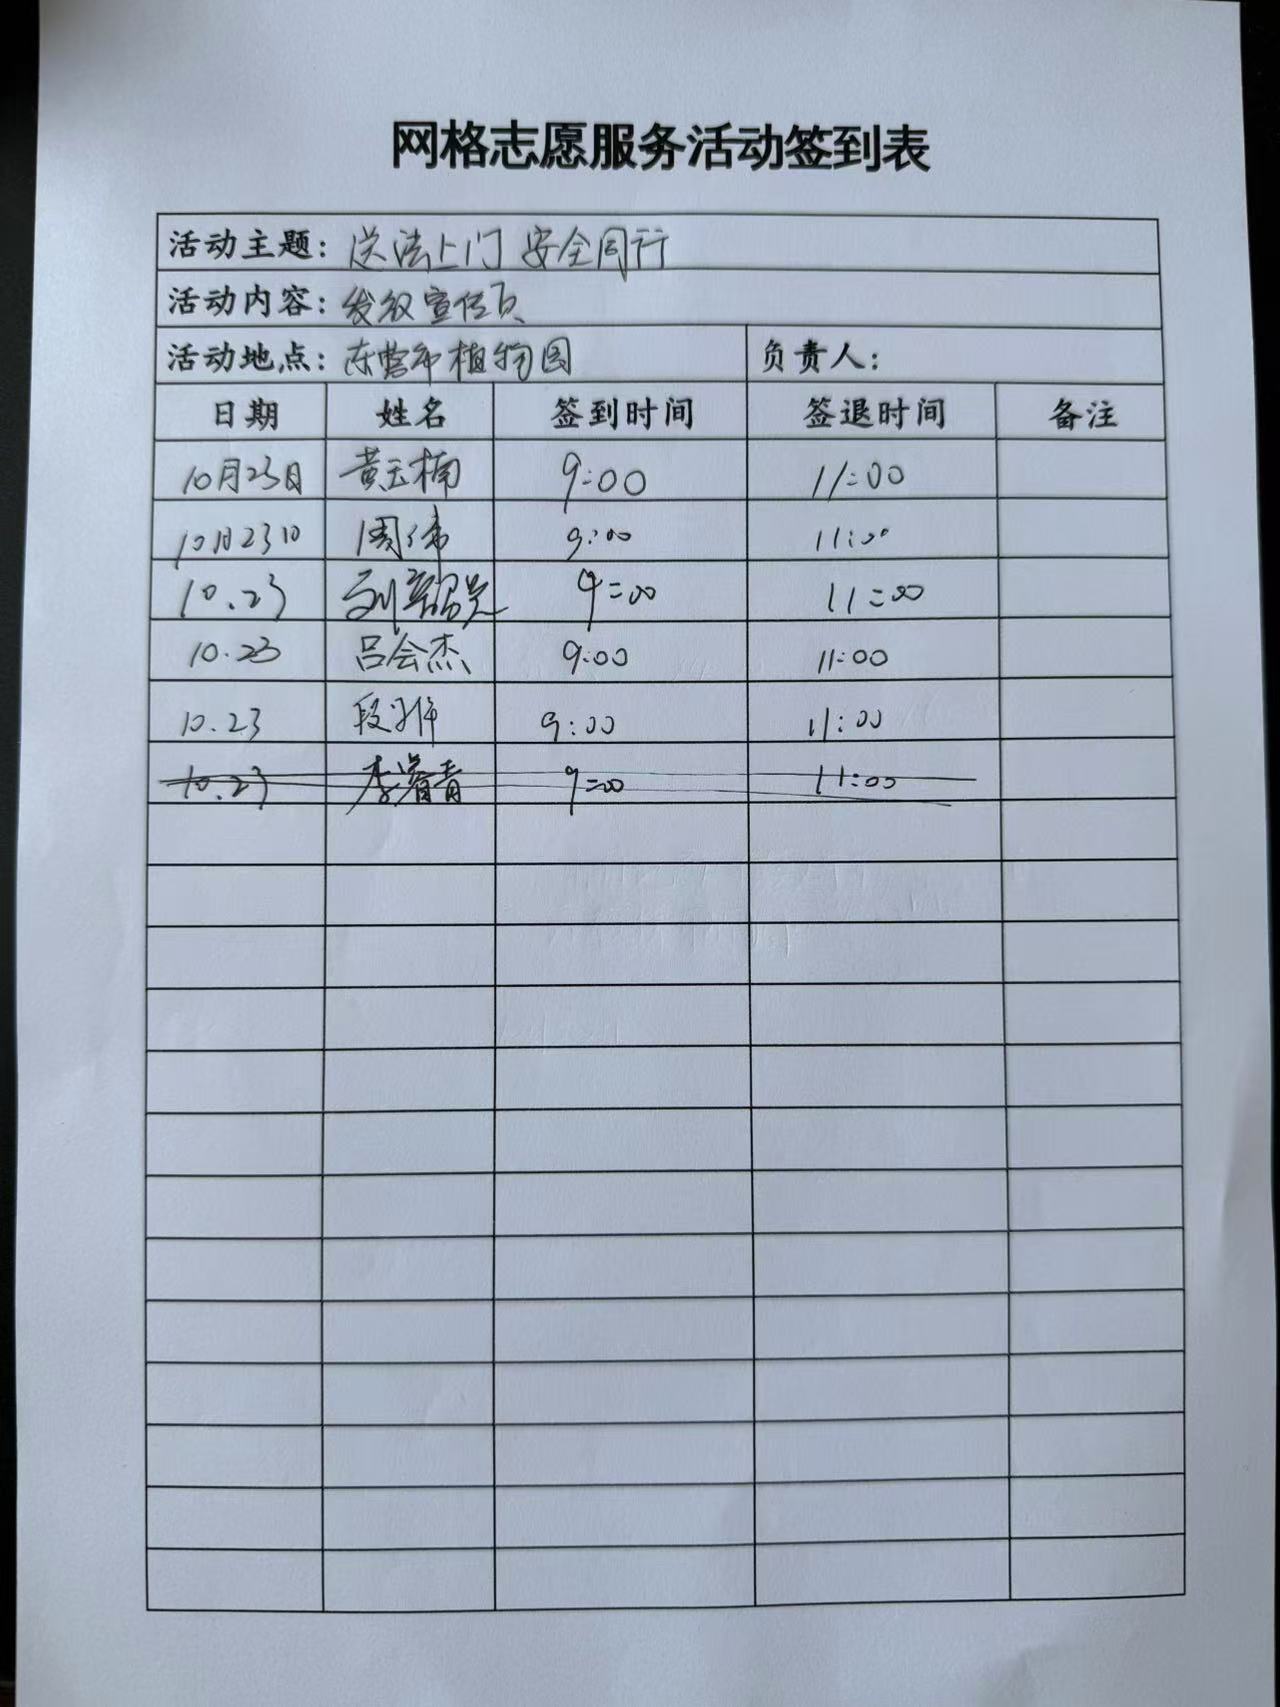 网格志愿服务活动签到表
活动主题：送法上门 安全同行
活动内容：发放宣传页
活动地点：东营市植物园 负责人：
日期 姓名 签到时间 签退时间 备注
10月23日 黄玉楠 9:00 11:00
10月23日 周伟 9:00 11:00
10.23 刘 9:00 11:00
10.23 吕会杰 9:00 11:00
10.23 段 9:00 11:00
10.23 李睿青 9:00 11:00